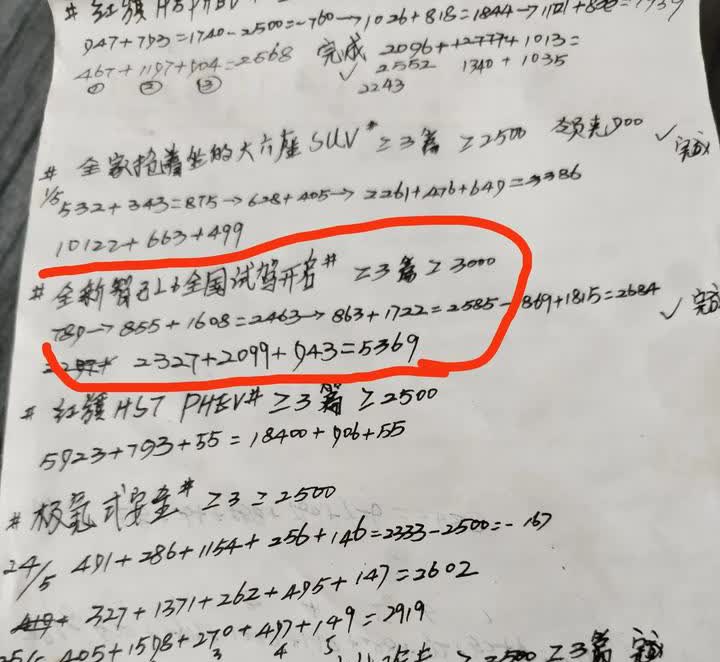 # 红旗 H5 PHEV
947+793=1740-2500=-760→1026+818=1844→1121+
467+1197+904=2568 完成 2096+ 1013=
① ② ③ ✓ 2552 1340+1035
2243
# 全家抢着坐的大六座SUV# ≥3篇 ≥2500 领克900 ✓ 完成
1/5 532+343=875→628+405→2261+476+649=3386
10122+663+499
# 全新智己L6全国试驾开启# ≥3篇≥3000
789→855+1608=2463→863+1722=2585-869+1815=2684 ✓ 完成
2327+2099+943=5369
# 红旗HS7 PHEV# ≥3篇 ≥2500
5923+793+55=18400+906+55
# 极氪式安全# ≥3 ≥2500
24/5 491+286+1154+256+146=2333-2500=-167
327+1371+262+495+147=2602
25/5 405+1598+270+497+149=2919
3 4 5
≥2500 ≥3篇 完成